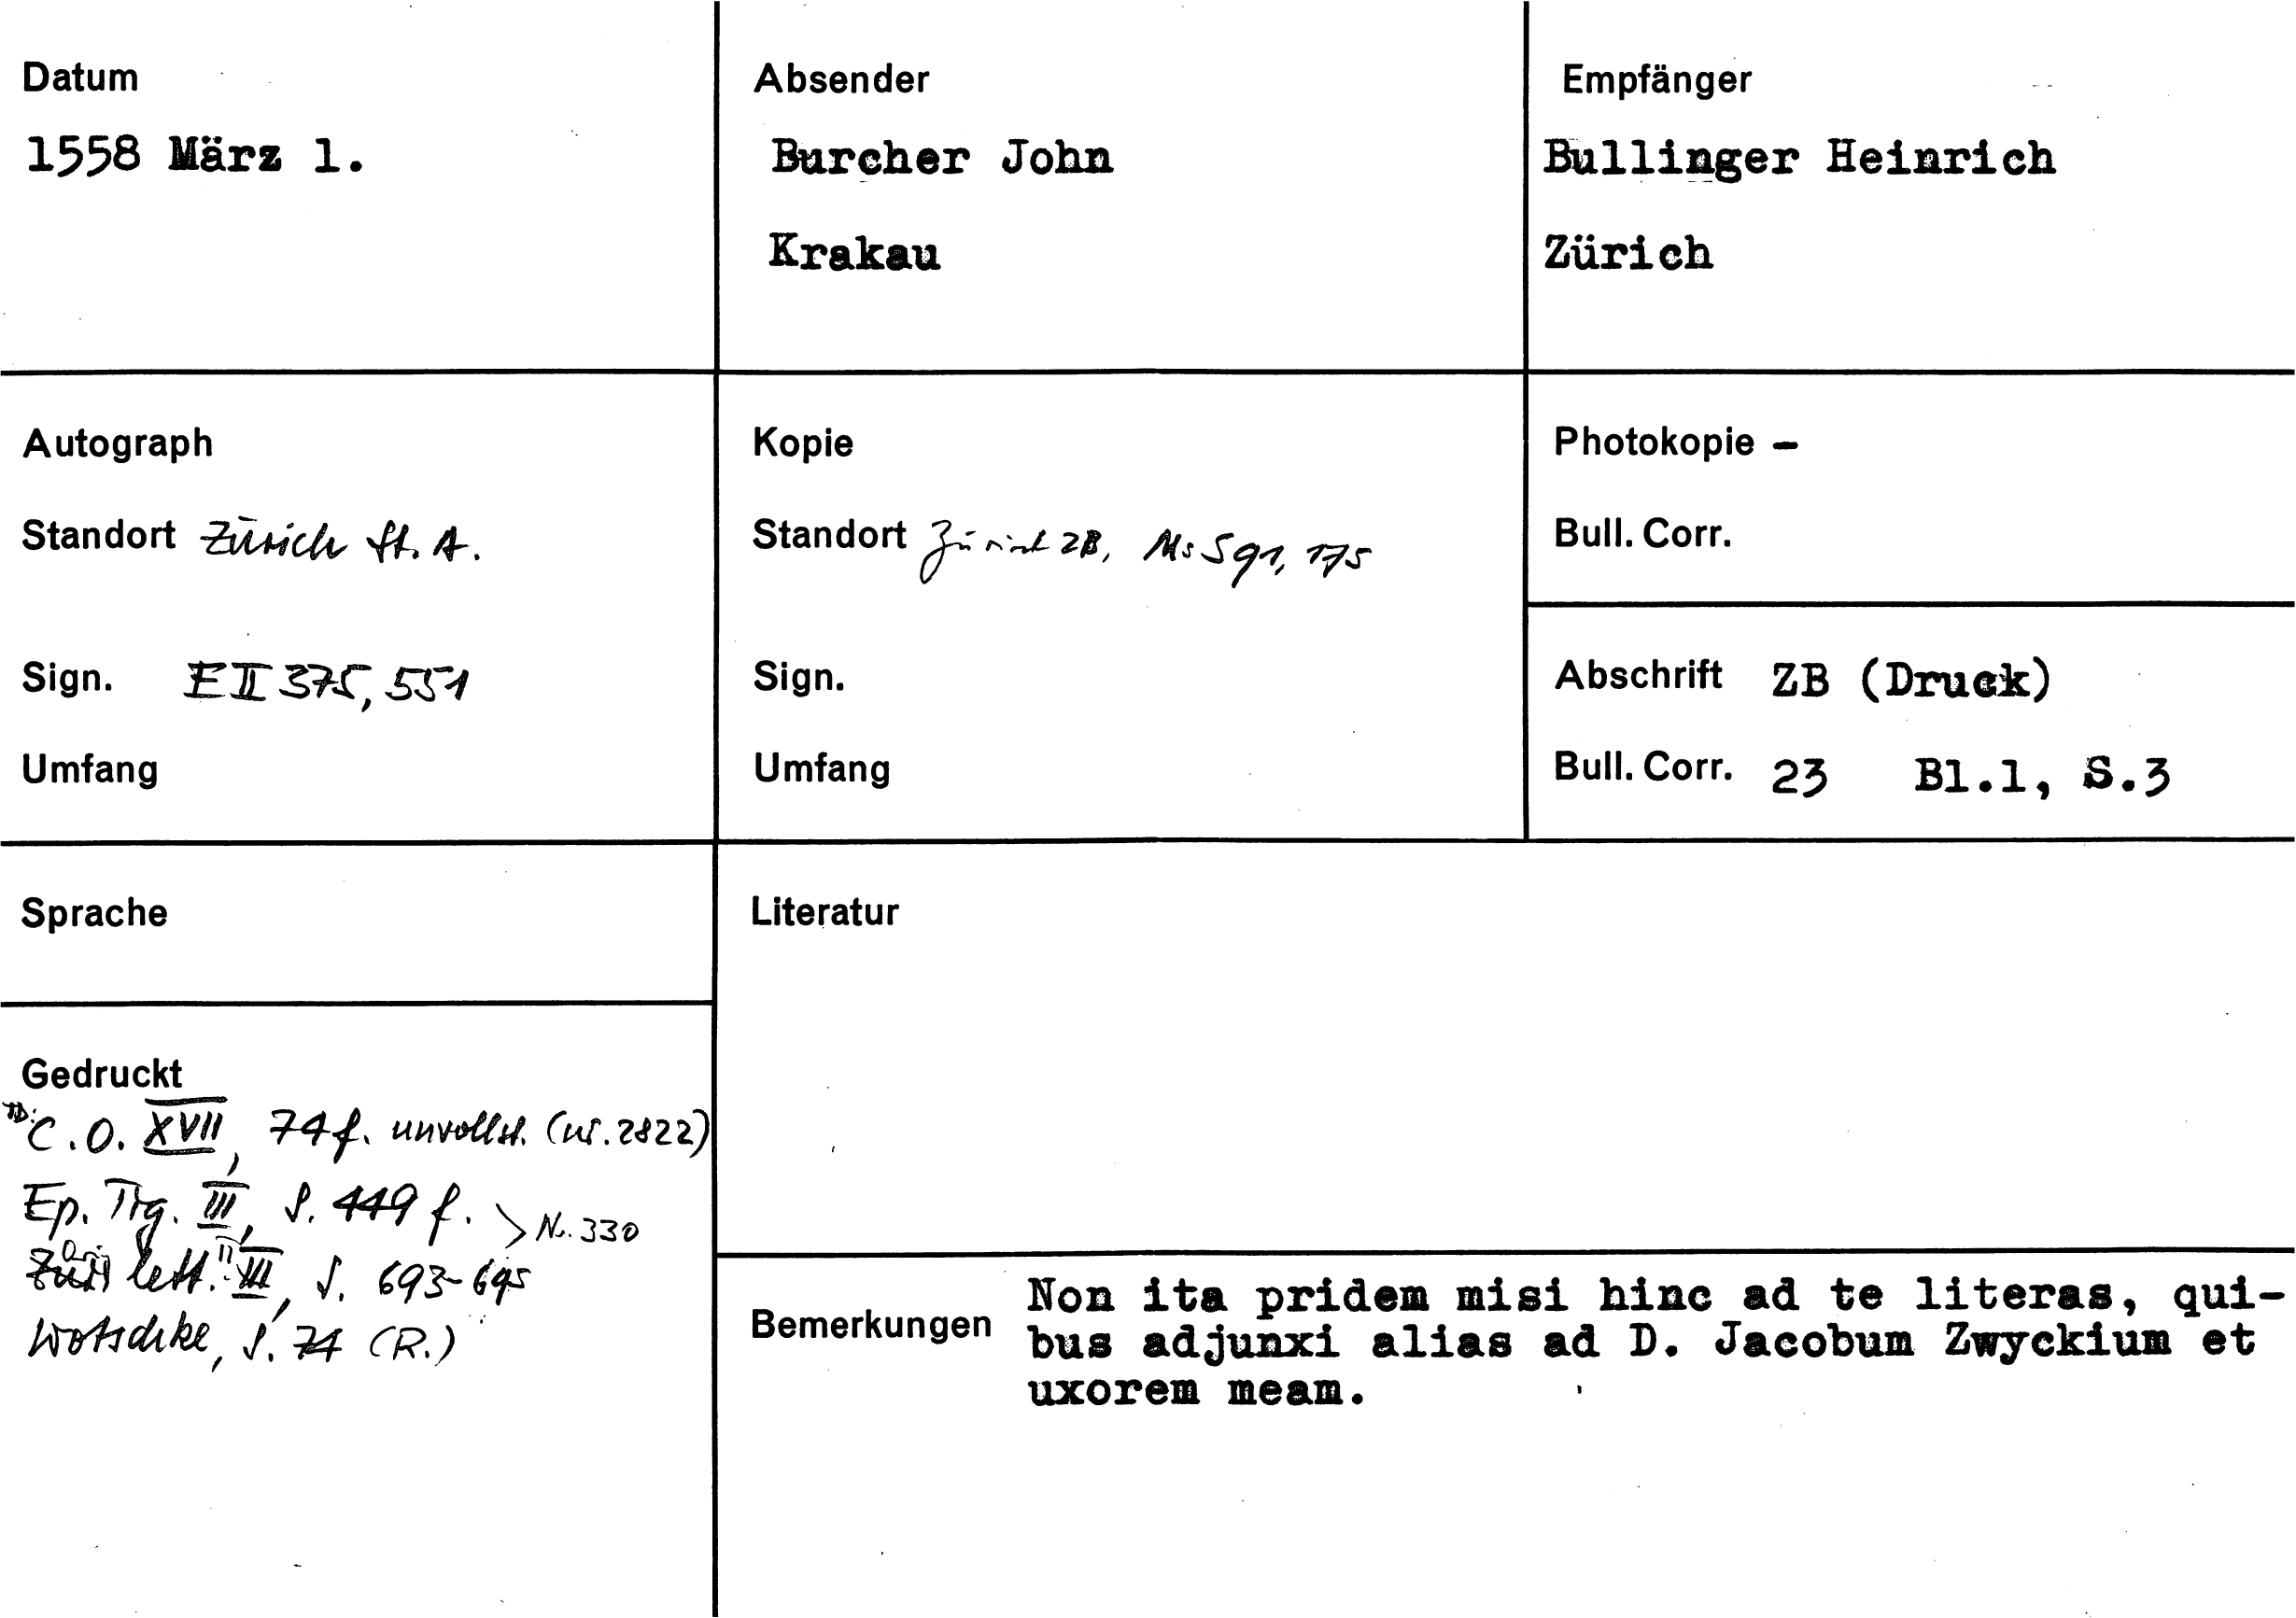 Datum
1558 März 1.
Absender
Burcher John
Krakau
Empfänger
Bullinger Heinrich
Zürich
Autograph
Standort Zürich St. A.
Sign. E II 375, 551
Umfang
Kopie
Standort Zürich ZB, Ms S 91, 175
Sign.
Umfang
Photokopie –
Bull. Corr.
Abschrift ZB (Druck)
Bull. Corr. 23 Bl.1, S.3
Sprache
Literatur
Gedruckt
C. O. XVII, 74 f. unvollst. (nr. 2822)
Ep. Tig. III, S. 449 f. > No. 330
lett. III, S. 693-695
Wotschke, S. 74 (R.)
Bemerkungen
Non ita pridem misi hinc ad te literas, qui-
bus adjunxi alias ad D. Jacobum Zwyckium et
uxorem meam.